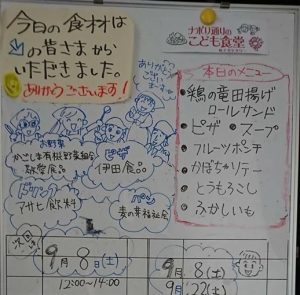 今日の食材は
の皆さまから
いただきました。
ありがとうございます!
ナポリ通りの
こども食堂
ありがとう
ござい
ます
本日のメニュー
・鶏の竜田揚げ
ロールサンド
・ピザ ・スープ
・フルーツポンチ
・かぼちゃソテー
・とうもろこし
・ふかしいも
お野菜
かごしま有機野菜組合
ピザ
伊田食品
ドリンク
アサヒ飲料
パン
麦の芽福祉会
次回
9月8日(土)
12:00~14:00
9月8(土)
9月22(土)